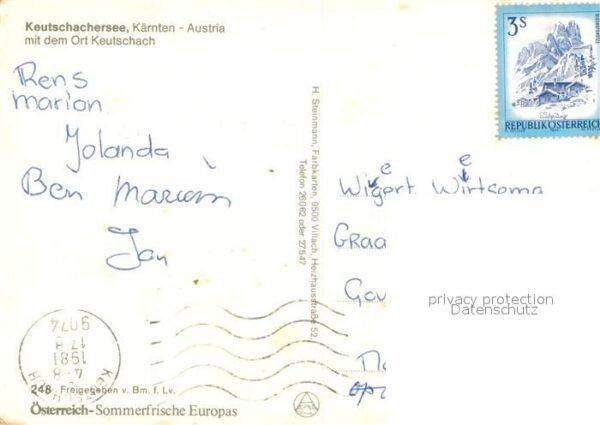 Keutschachersee, Kärnten - Austria
mit dem Ort Keutschach
Rens
marion
Jolanda
Ben
Jan
H. Steinmann, Farbkarten, 9500 Villach, Heizhausstraße 52,
Telefon 26062 oder 27547
3S
REPUBLIK ÖSTERREICH
e e
Wigert Wirtsoma
Graa
Gou
privacy protection
Datenschutz
9074
17
1981
4-8
248 Freigegeben v. Bm. f. Lv.
Österreich-Sommerfrische Europas